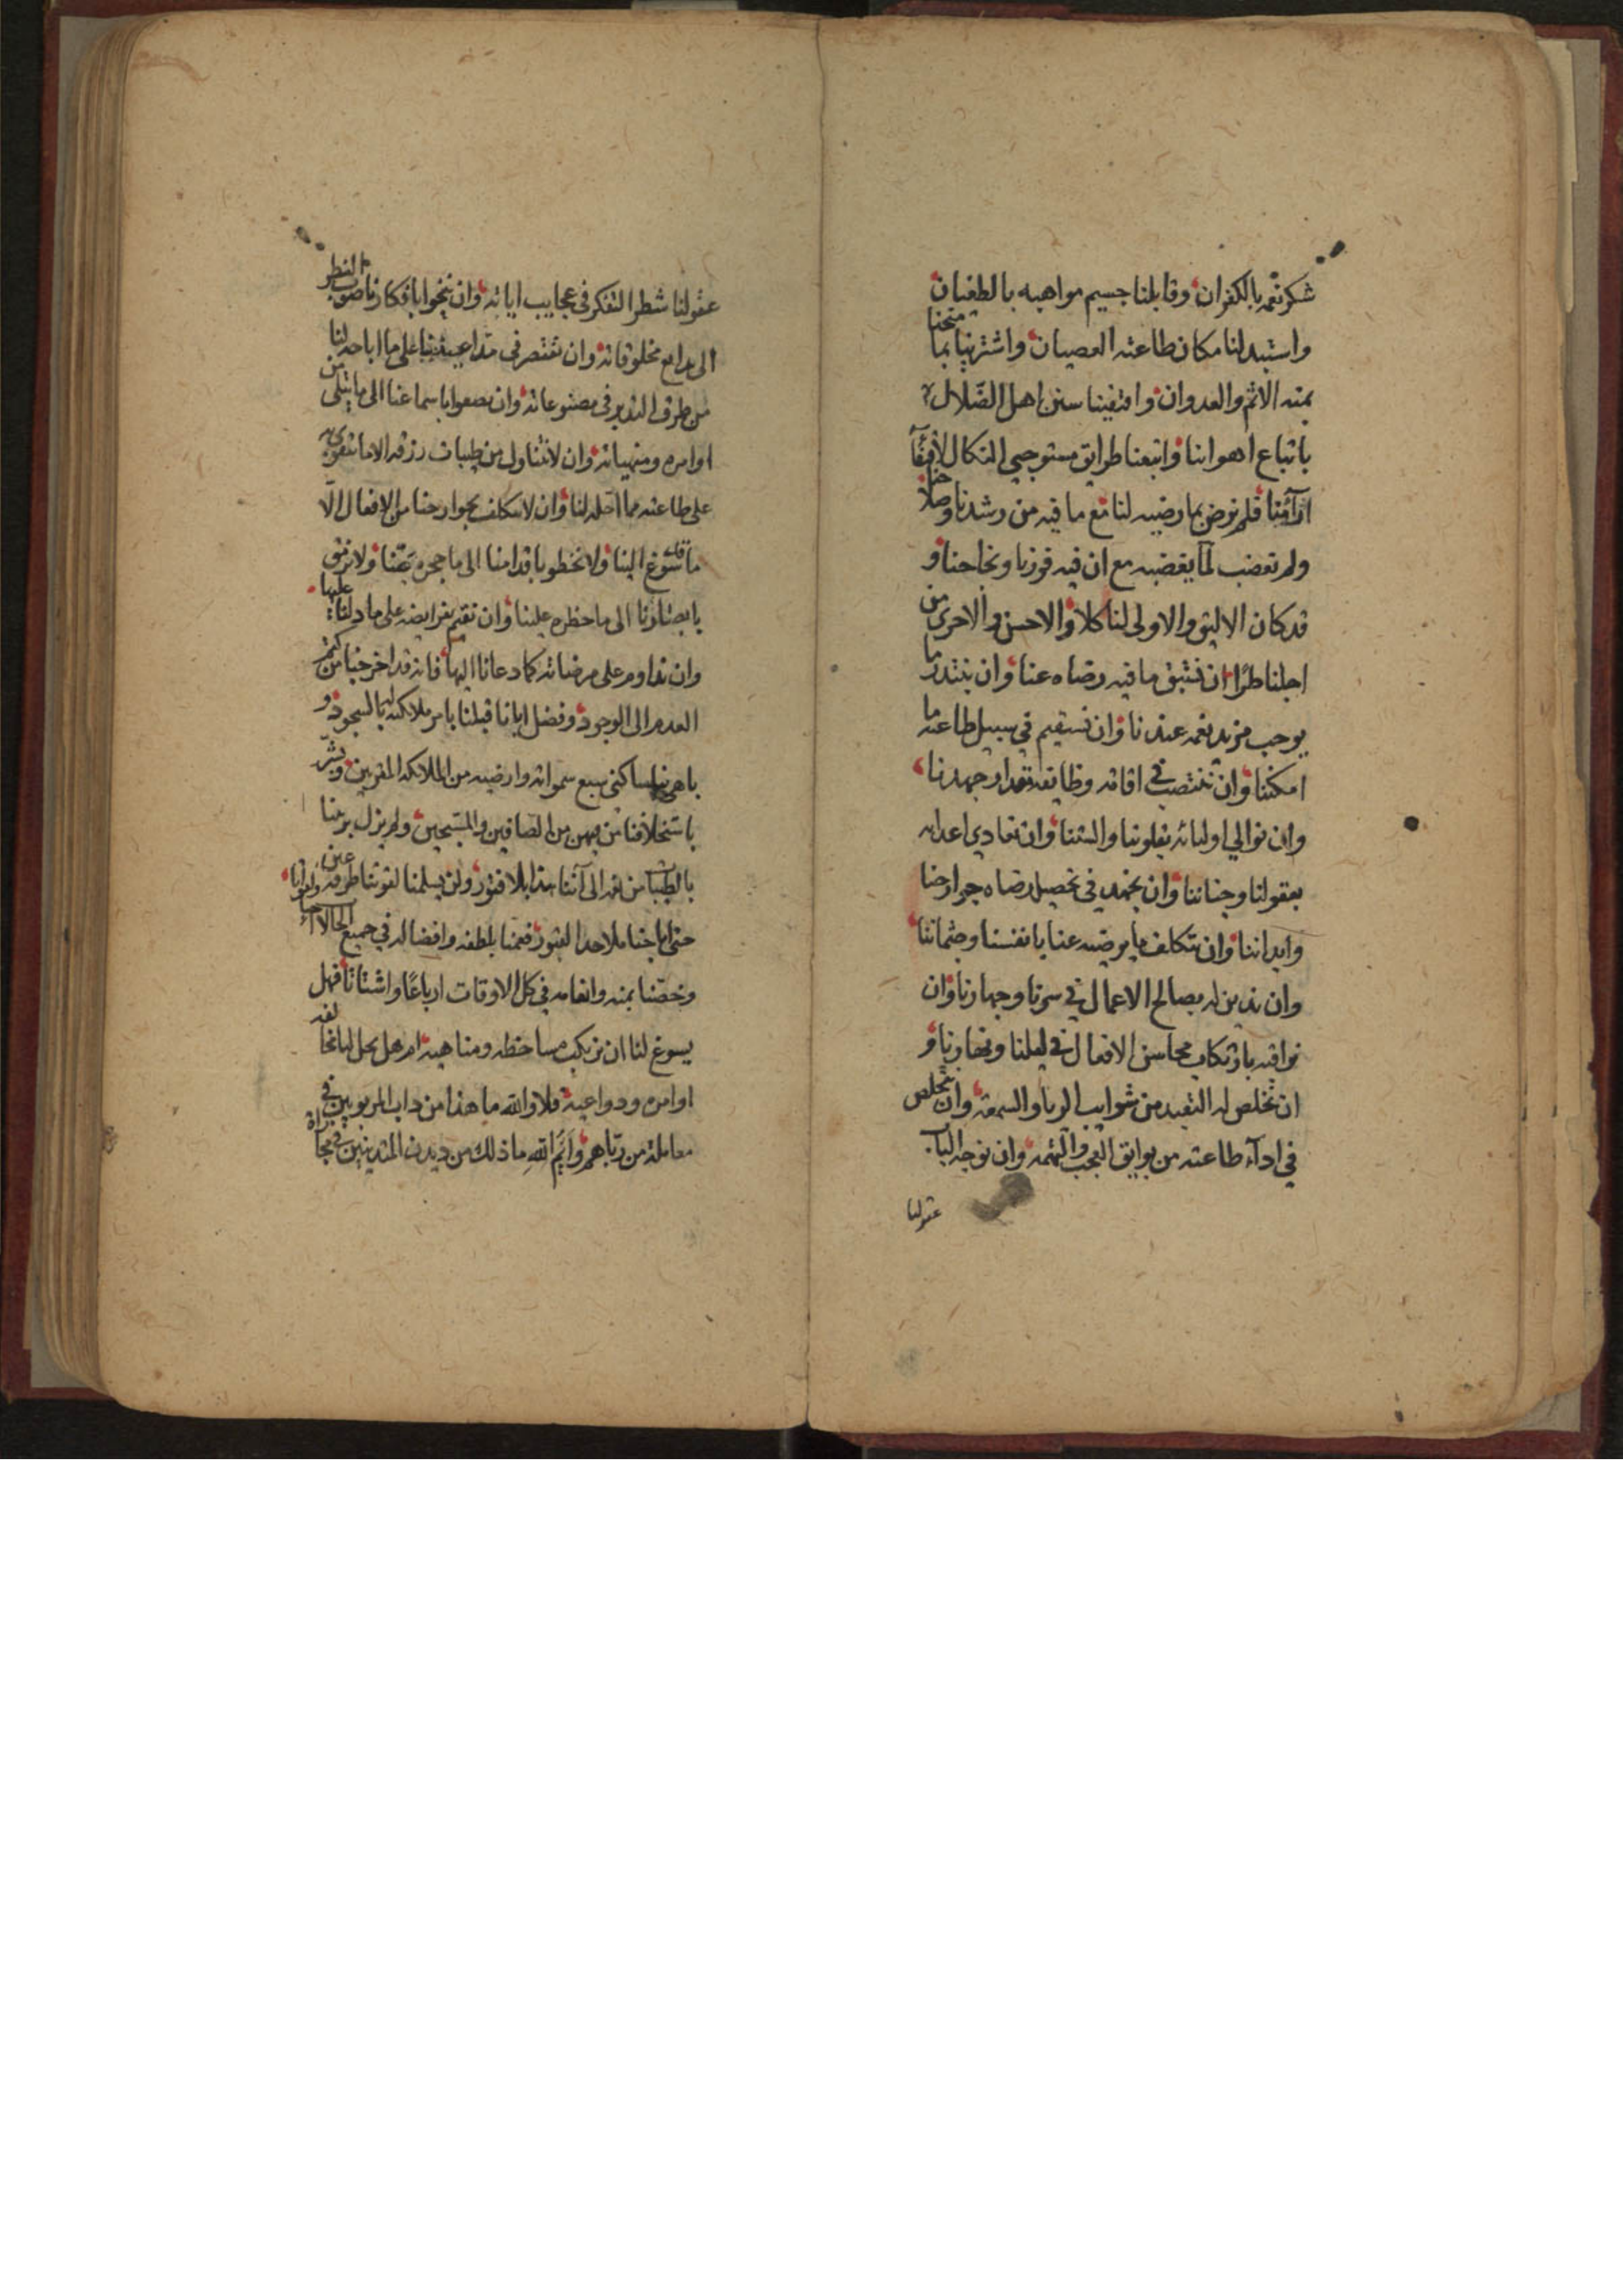 شكر نعمه بالكفران وقابلنا جسيم مواهبه بالطغيان
واستبدلنا مكان طاعته العصيان واشترينا بما منحنا
بمنه الاثم والعدوان واقتفينا سنن اهل الضّلال
باتباع اهوائنا واتبعنا طرايق مستوجبي النكال
ارآئنا فلم نرض بما رضيه لنا مع ما فيه من رشدنا وصلاحنا
ولم نغضب لما يغضبه مع ان فيه فوزنا ونجاحنا و
قد كان الاليق والاولى لنا كلا والاحسن والاحرى من
اجلنا طرًا ان فيه رضاه عنا وان نبتدر ما
يوجب مزيد نعمه عندنا وان نستقيم في سبيل طاعته ما
امكننا وان في اقامة وظايفه بمقدار جهدنا
وان نوالي اوليائه بقلوبنا والسنتنا وان نعادي اعدائه
بعقولنا وجناننا وان نجتهد في تحصيل رضاه بجوارحنا
وابداننا وان نتكلف ما يرضيه عنا بانفسنا وجثماننا
وان ندين له بصالح الاعمال في سرنا وجهارنا وان
نراقبه بارتكاب محاسن الافعال في ليلنا ونهارنا و
ان نخلص له التعبد من شوايب الريا والسمعة وان نتخلص
في ادآء طاعته من بوايق العجب والتهمة وان نوجه الباب
عقولنا
عقولنا شطر التفكر في عجايب اياته وان ننحوا بافكارنا صوب النظر
الى بدايع مخلوقاته وان نقتصر في على ما اباحه لنا
من طرق التدبر في مصنوعاته وان نصغوا باسماعنا الى ما يتلى من
اوامره ومنهياته وان لا نتناول من طيبات رزقه الا ما نتقوى به
على طاعته مما احله لنا وان لا نكلف بجوارحنا من الافعال الّا
ما الينا ولا نخطو باقدامنا الى ما حجره عنا ولا نرمق
بابصارنا الى ما حظره علينا وان نقيم فرايضه على ما دلنا عليها
وان نداوم على مرضاته كما دعانا اليها فانه قد اخرجنا من كتم
العدم الى الوجود وفضل ابانا قبلنا بامر ملائكته لهم بالسجود و
باهى بنا ساكني سبع سمواته وارضيه من الملائكه المقربين وبشر
باستخلافنا من بينهن من الصافين والمسبحين ولم يزل يربينا
بالطيبات من نعمه الى آننا هذا بلا فتور ولن يسلمنا لقوتنا طرفة عين
حتى فعمنا بلطفه وافضاله في جميع الحالات
وخصّنا بمنه وانعامه في كل الاوقات ارباعًا واشتاتًا فهل
يسوغ لنا ان نرتكب مساخطه ومناهيه ام هل يحل لنا
اوامره ودواعيه فلا والله ما هذا من داب المربوبين في
معاملة من رباهم وأيم الله ما ذلك من ديدن المتدينين في مجازاة